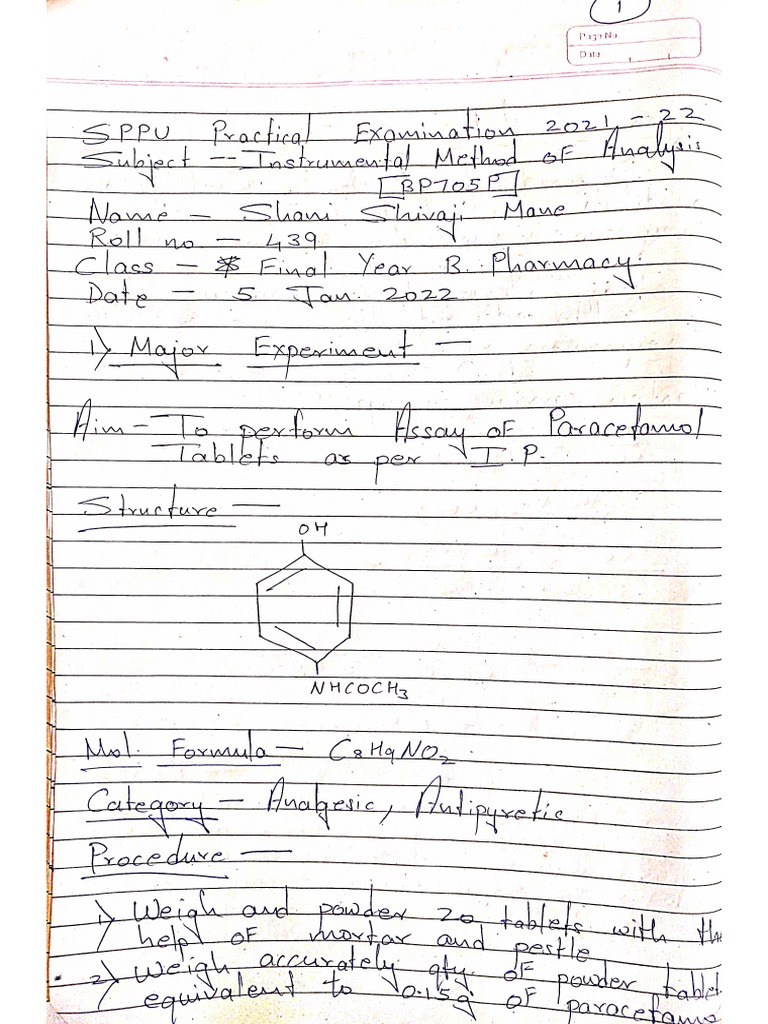 1
Page No.
Date
SPPU Practical Examination 2021 - 22
Subject -- Instrumental Method of Analysis
BP705P
Name - Shani Shivaji Mane
Roll no - 439
Class - Final Year B. Pharmacy
Date - 5 Jan 2022
1) Major Experiment -
Aim - To perform Assay of Paracetamol
Tablets as per I.P.
Structure -
OH
NHCOCH3
Mol. Formula - C8H9NO2
Category - Analgesic, Antipyretic
Procedure -
1) Weigh and powder 20 tablets with the
help of mortar and pestle
2) Weigh accurately qty. of powder tablet
equivalent to 0.15g of paracetamo